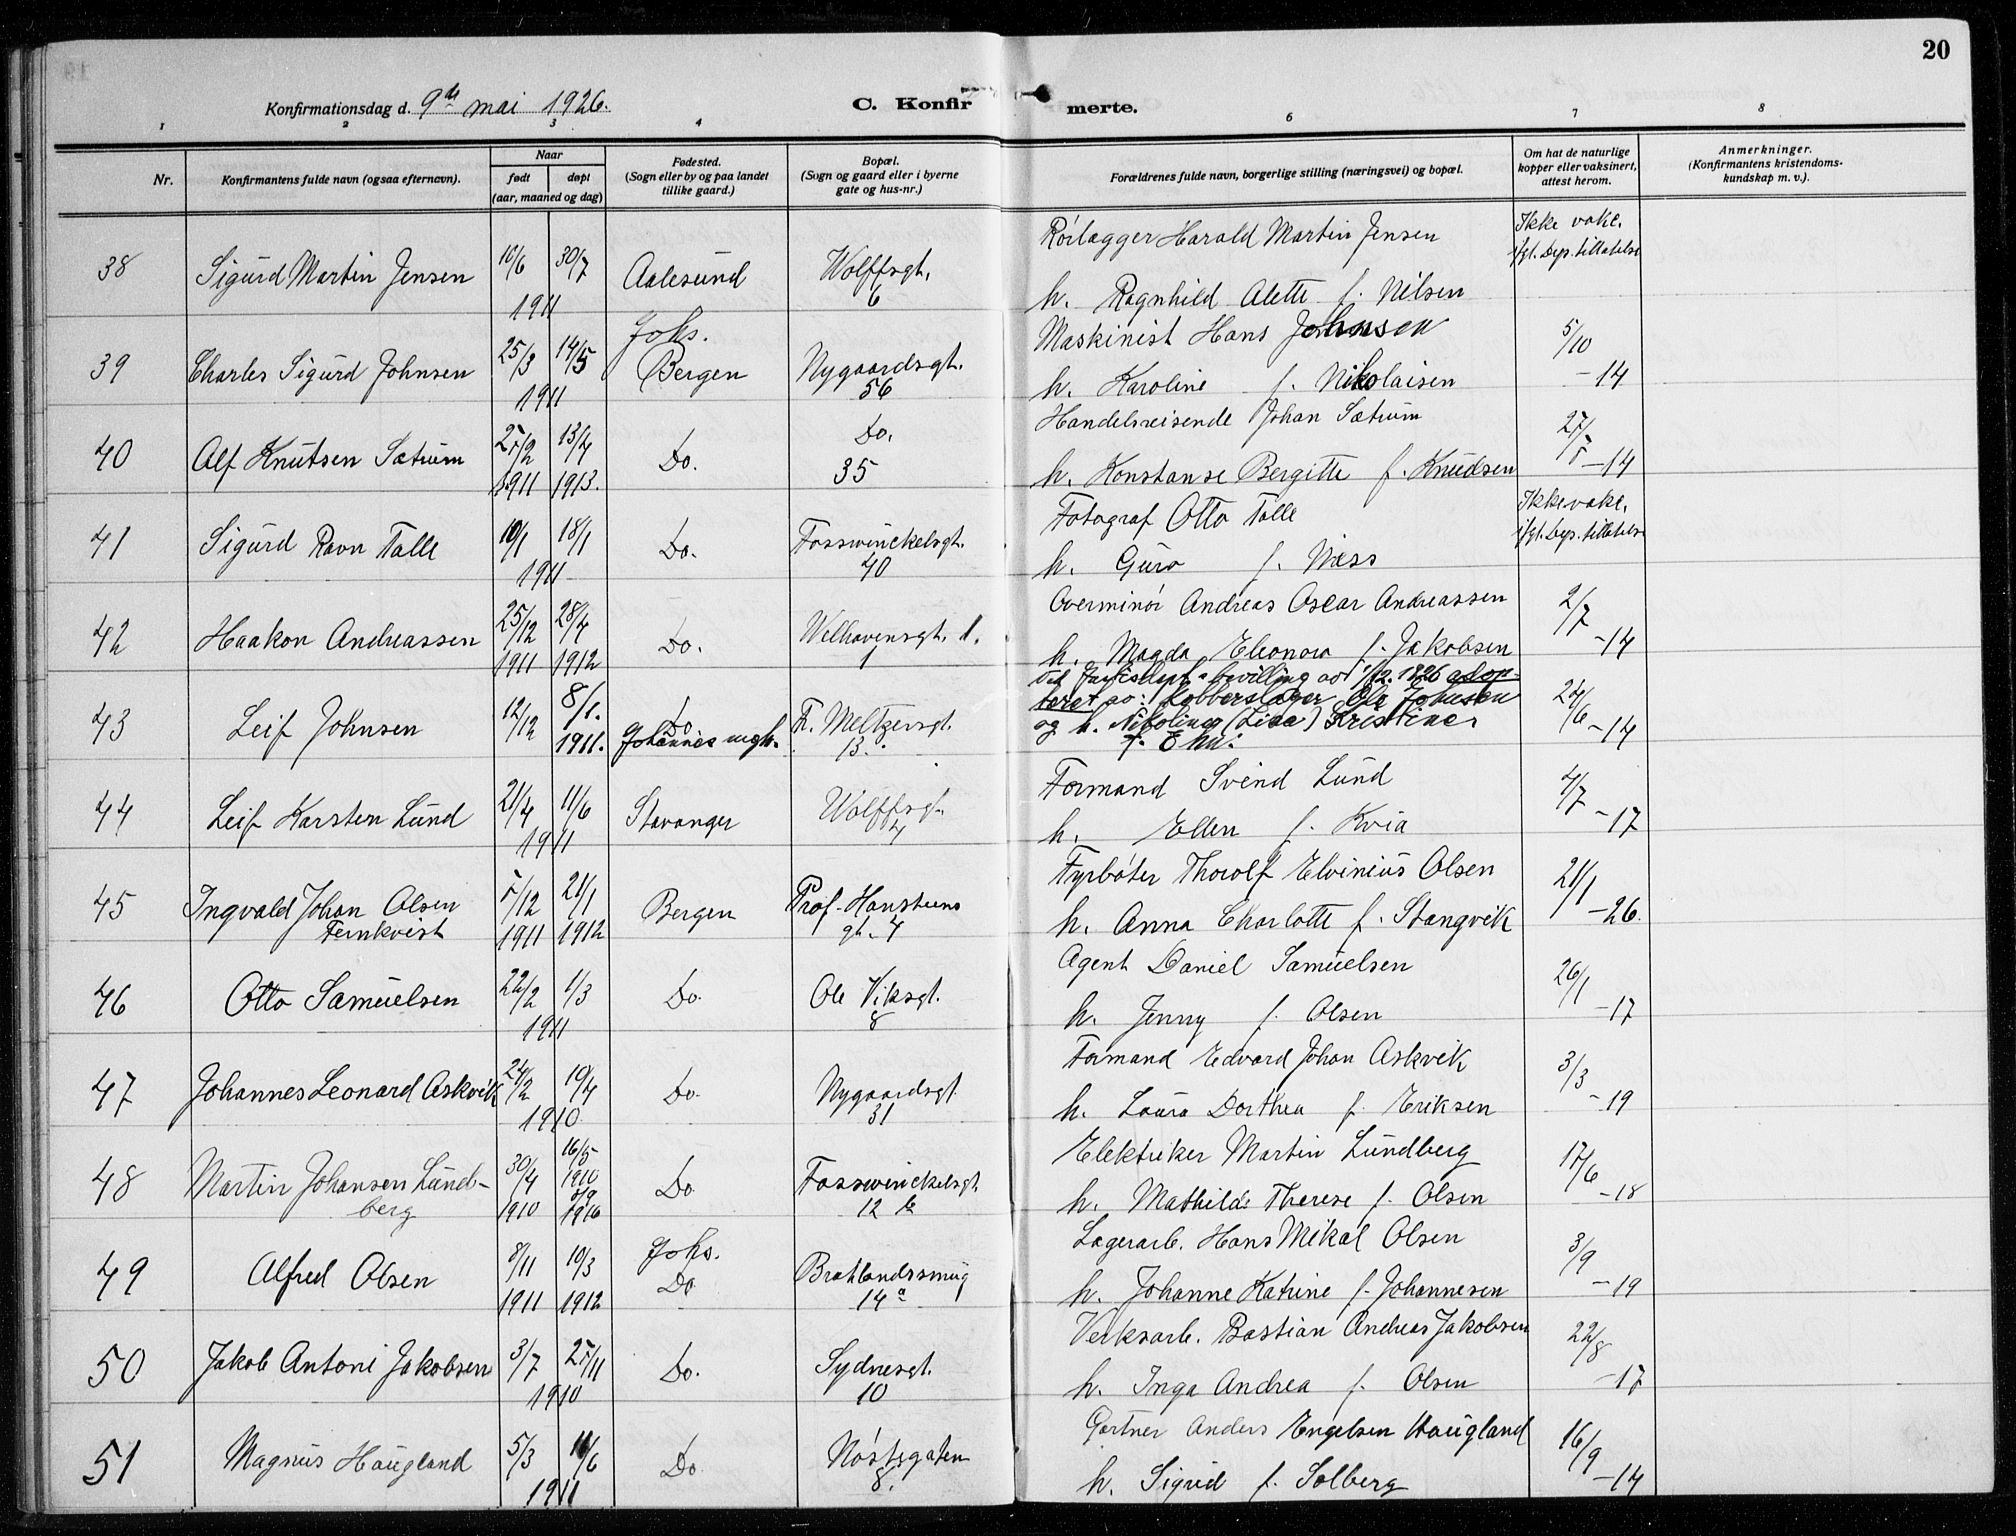 20
Konfirmationsdag d. 9de mai 1926.
C. Konfirmerte.
1 2 3 4 6 7 8
Nr.
Konfirmantens fulde navn (ogsaa efternavn).
Naar
født døpt
(aar, maaned og dag)
Fødested.
(Sogn eller by og paa landet
tillike gaard.)
Bopæl.
(Sogn og gaard eller i byerne
gate og hus-nr.)
Forældrenes fulde navn, borgerlige stilling (næringsvei) og bopæl.
Om hat de naturlige
kopper eller vaksinert,
attest herom.
Anmerkninger.
(Konfirmantens kristendoms-
kundskap m. v.).
Rörlægger Harald Martin Jensen Ikke vakc.
ifgl. Dep. tillatelse
38 Sigurd Martin Jensen 10/6 30/7 Aalesund Wolffsgt.
1911 6 h. Ragnhild Alette f. Nilsen
Johs. Maskinist Hans Johnsen 5/10
39 Charles Sigurd Johnsen 25/3 14/5 Bergen Nygaardsgt.
1911 56 h. Karoline f. Nikolaisen -14
Handelsreisende Johan Sætrum
40 Alf Knutsen Sætrum 13/4 Do. Do.
1911 1913. 35 h. Konstanse Bergitte f. Knudsen -14
Fotograf Otto Talle Ikke vakc.
ifgl. Dep. tillatelse
41 Sigurd Ravn Talle 10/1 18/1 Do. Fosswinckelsgt.
1911 40 h. Guro f. Næss
Overminör Andreas Oscar Andreassen 2/7
42 Haakon Andreassen 25/12 28/4 Do. Welhavensgt.
1911 1912 1 h. Magda Eleonora f. Jakobsen -14
Ved Justisdept. bevilling av 1/12. 1926 adop-
teret av: Kobberslager Ole Johnsen 24/6
43 Leif Johnsen 12/12 8/1. Do F. Meltzersgt. og h. Nikolines (Lina) Kristine
1911. Johannes mgh. 13. -14
Formand Svend Lund 4/7
44 Leif Karsten Lund 21/4 11/6 Stavanger Wolffsgt.
1911 4 h. Ellen f. Kvia -17
Fyrböter Thorolf Elvinius Olsen 21/1
45 Ingvald Johan Olsen 5/12 21/1 Bergen Prof. Hansteens
Fernkvist 1911 1912 gt. 4 h. Anna Charlotte f. Stangvik -26.
Agent Daniel Samuelsen 26/1
46 Otto Samuelsen 22/2 1/3 Do. Ole Viksgt.
1911 8 h. Jenny f. Olsen -17
Formand Edvard Johan Askvik 3/3
47 Johannes Leonard Askvik 24/2 10/4 Do. Nygaardsgt.
1910 31 h. Laura Dorthea f. Eriksen -19
Elektriker Martin Lundberg 17/6
48 Martin Johansen Lund- 30/4 16/5 1910 Do Fosswinckelsgt.
berg 1910 1916 12 b h. Mathilde Therese f. Olsen -18
Johs. Lagerarb. Hans Mikal Olsen 3/9
49 Alfred Olsen 8/11 10/3 Do Bratlandssmug
1911 1912 14 a h. Johanne Katrine f. Johannesen -19
Verksarb. Bastian Andreas Jakobsen 22/8
50 Jakob Antoni Jakobsen 3/7 27/11 Do. Sydnesgt.
1910 10 h. Inga Andrea f. Olsen -17
Gartner Anders Engelsen Haugland 16/9
51 Magnus Haugland 5/3 11/6 Do. Nöstegaten
1911 8. h. Sigrid f. Solberg -14